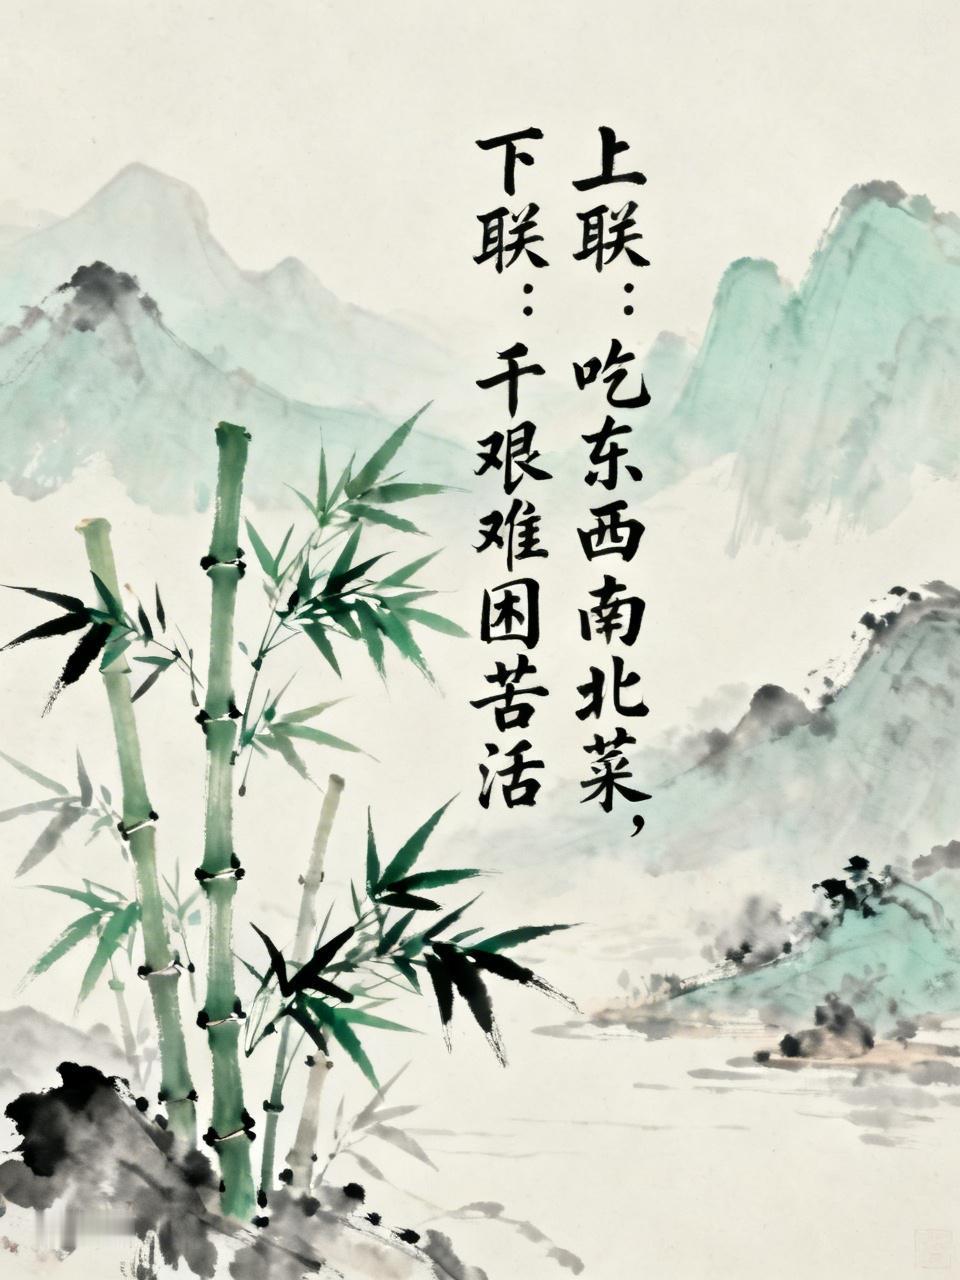 上联：吃东西南北菜，
下联：千艰难困苦活